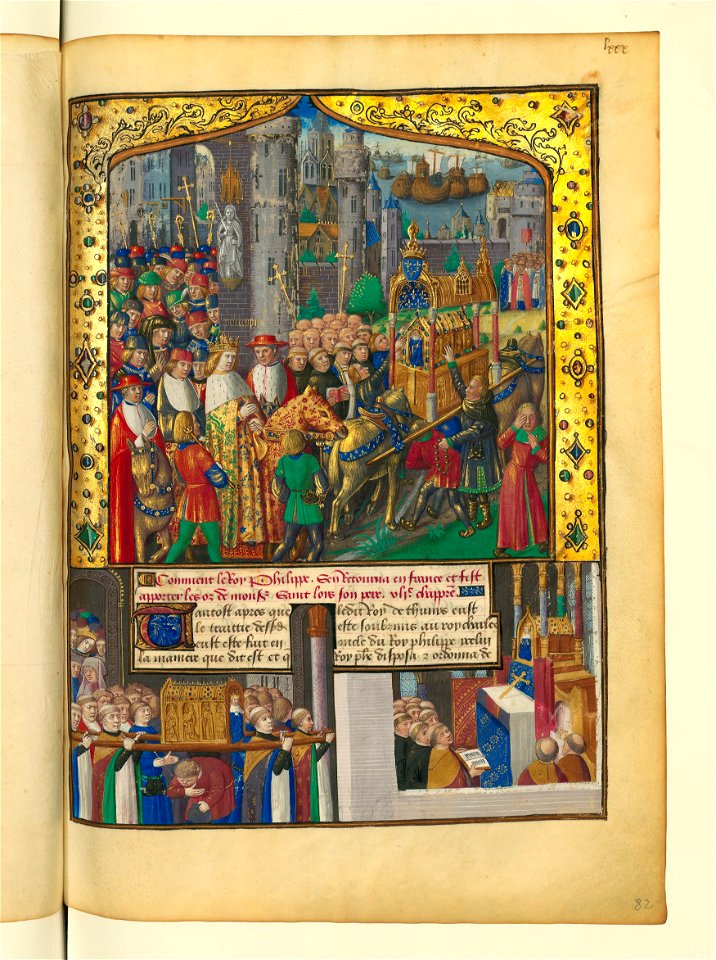 lxxx
Comment le Roy Phelippe. Sen Retourna en france et fist
apporter les os de mons.r Saint loys son pere. vlt. chappre.
Tantost apres que ledit Roy de thunis eust
le traittie dess.s este soubzmis au roy charles
eust este fait en oncle du Roy philippe voelui
la maniere que dit est et q Roy phe disposa et ordonna de
82